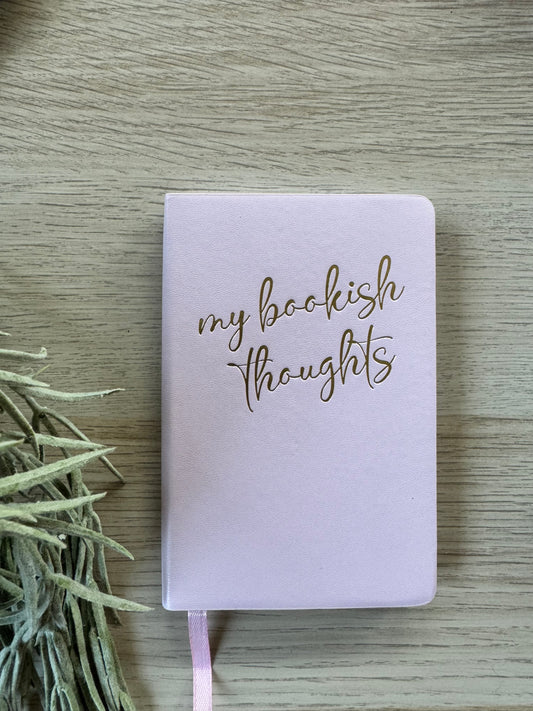 my bookish
thoughts